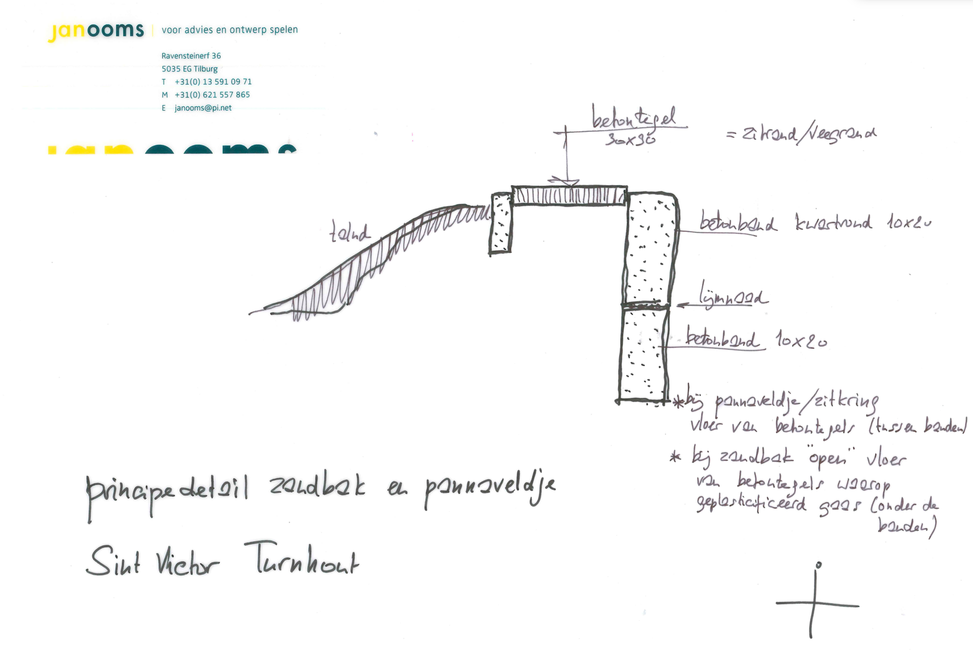 janooms voor advies en ontwerp spelen
Ravensteinerf 36
5035 EG Tilburg
T +31(0) 13 591 09 71
M +31(0) 621 557 865
E janooms@pi.net
janooms
betontegel
30x30
= zitrand/veegrand
talud
betonband kwartrond 10x20
lijmnaad
betonband 10x20
* bij pannaveldje/zitkring
vloer van betontegels (tussen banden)
* bij zandbak "open" vloer
van betontegels waarop
geplastificeerd gaas (onder de
banden)
principedetail zandbak en pannaveldje
Sint Victor Turnhout